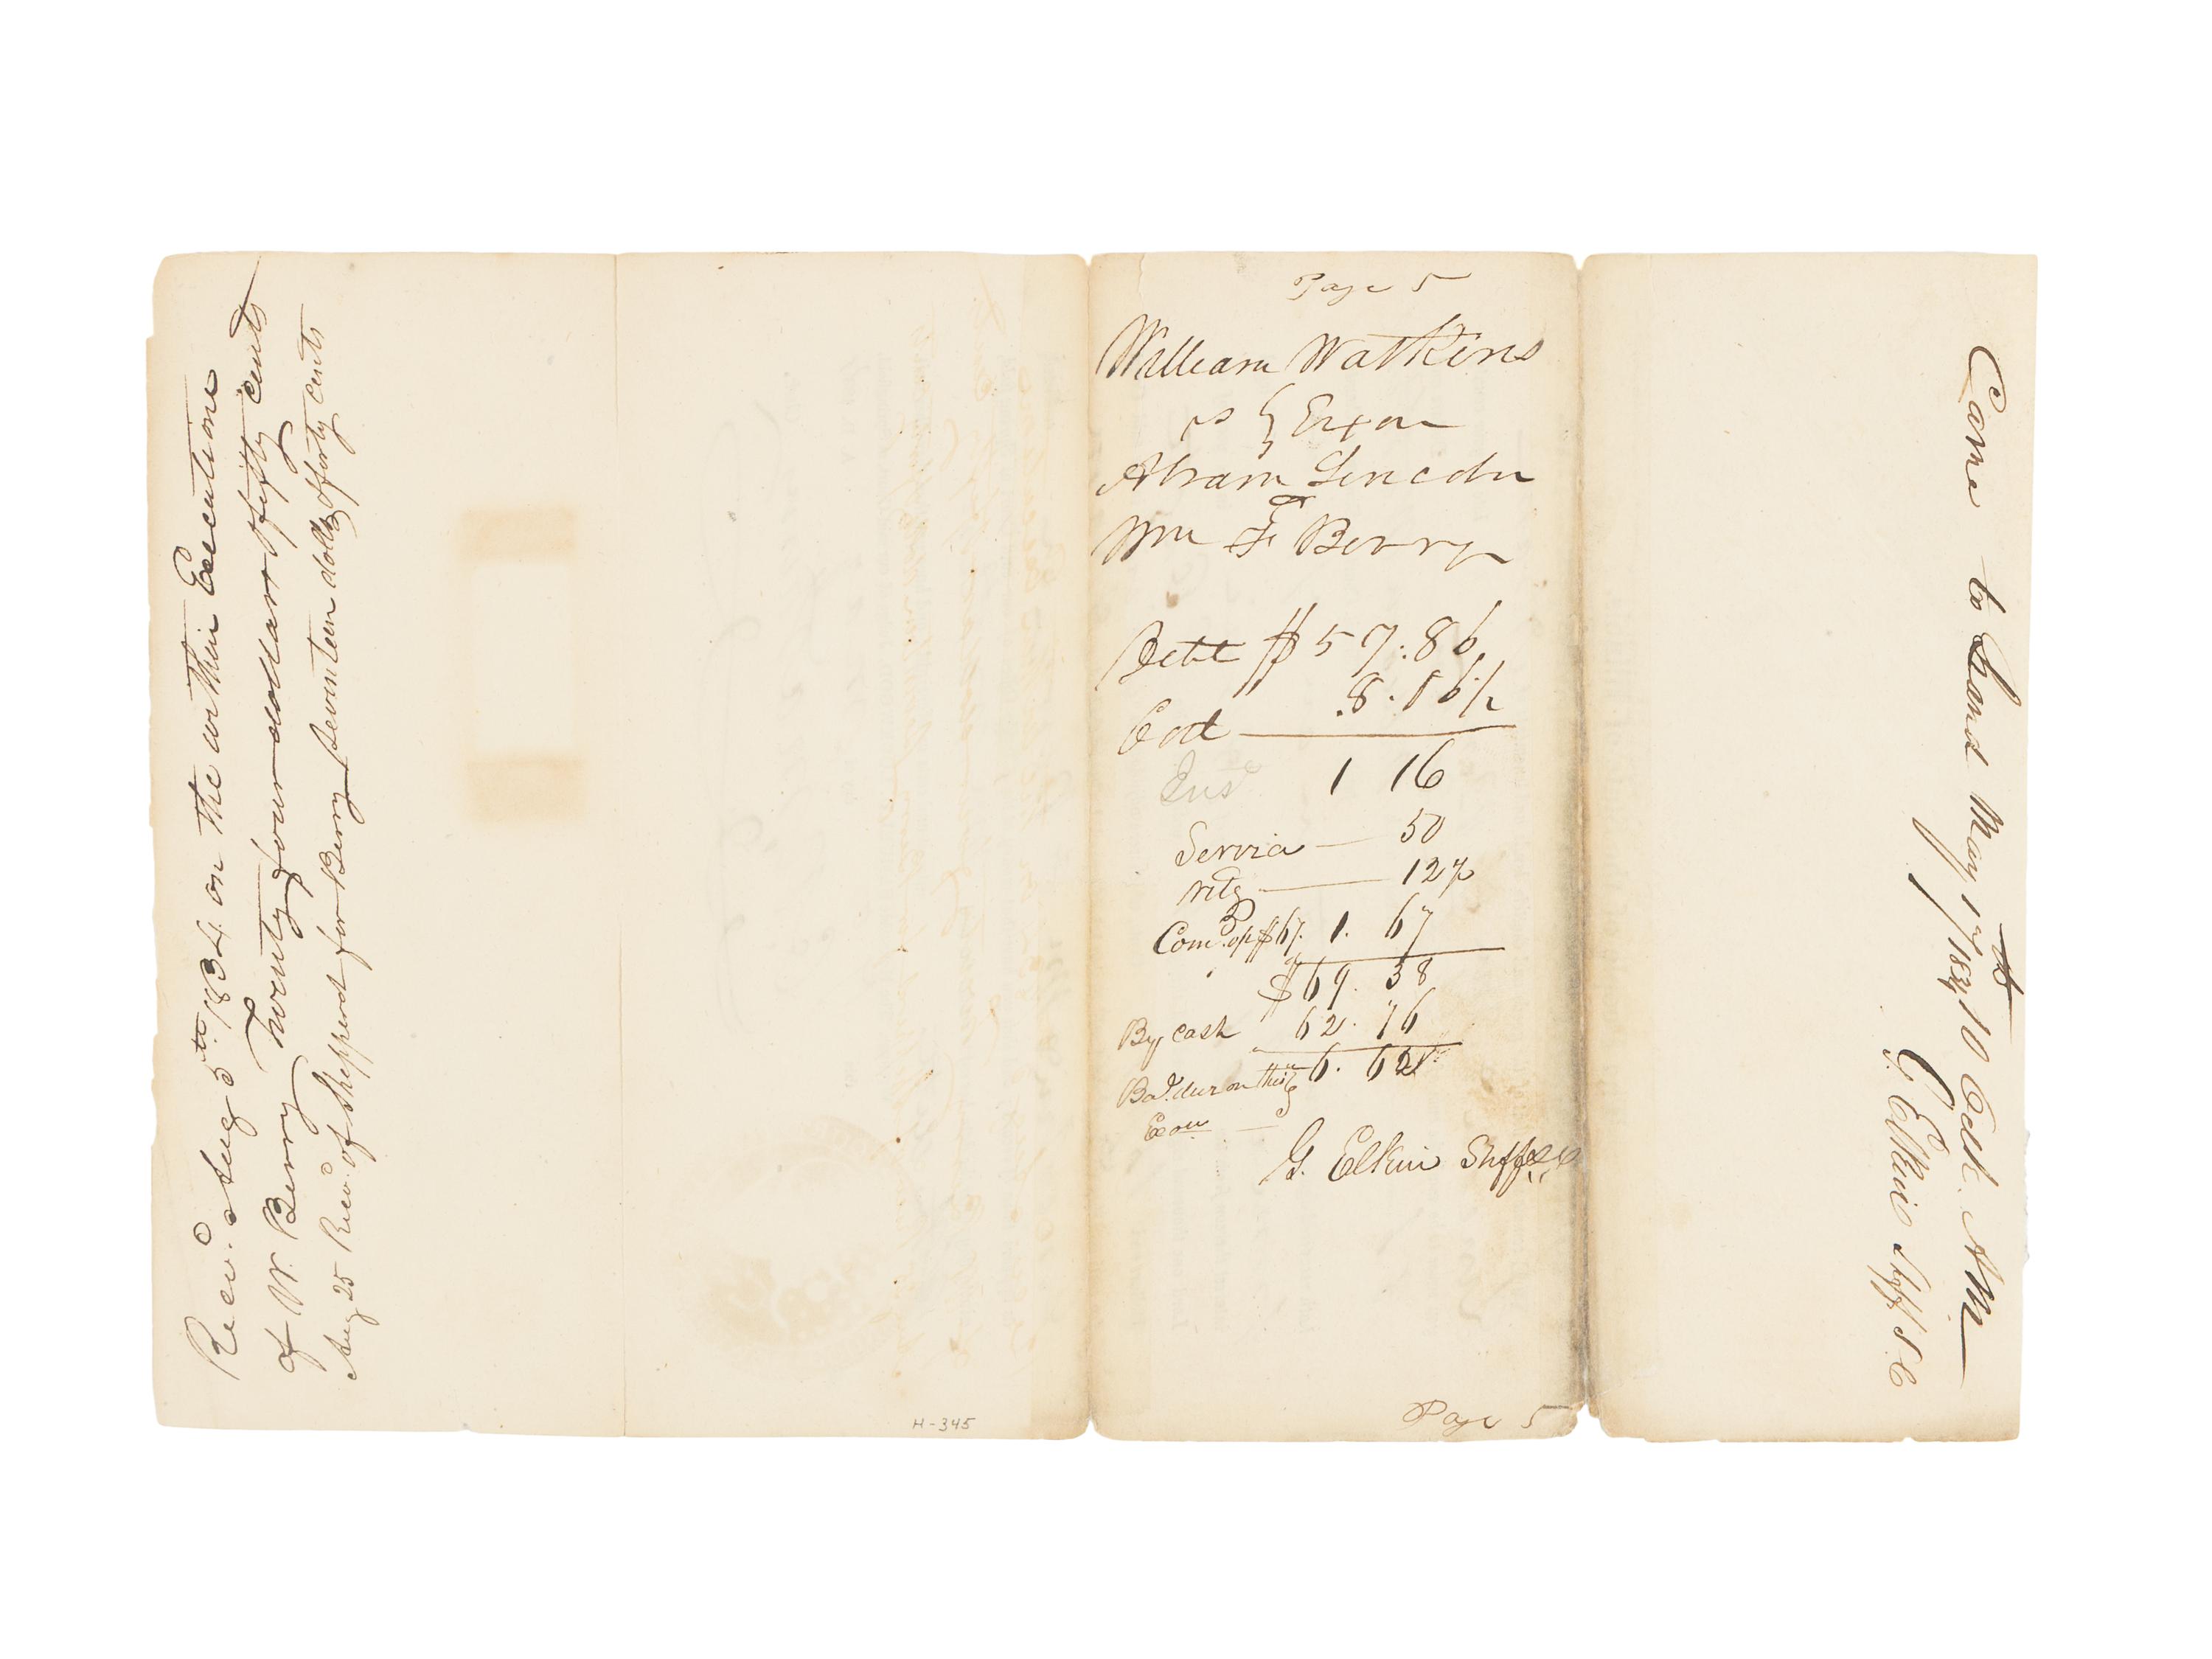 Recd. Aug 5th 1834 on the within Execution
of W. Berry twenty four dollars & fifty cents
Aug 25 Recd. of Shepperd for Berry seventeen dolls & forty cents
H-345
Page 5
William Watkins
vs } Exon
Abram Lincoln
&
Wm F Berry
Debt $57.86
Cost 8.16½
Inst 1 16
Service — 50
12½
Comd. op $67. 1. 67
$69. 38
By cash 62. 76
Bal. due on this 6. 62
Exon
G. Elkin Shff
Page 5
Came to hand May 17th 1834 10 Ock. AM
G. Elkin Shff S. C